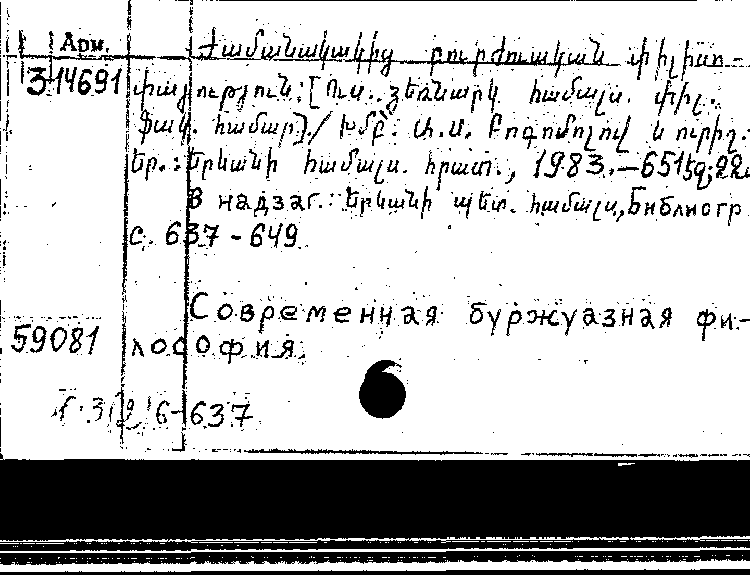 Арм. Ժամանակակից բուրժուական փիլիսո-
314691 փայություն: [Ուս. ձեռնարկ համալս. փիլ.
ֆակ. համար] / Խմբ. Ա.Ս. Բոգոմոլով և ուրիշ.
Եր.: Երևանի համալս. հրատ., 1983.–651 էջ; 22
В надзаг.: Երևանի պետ. համալս, Библиогр
с. 637-649
Современная буржуазная фи-
59081 лософия.
6-637